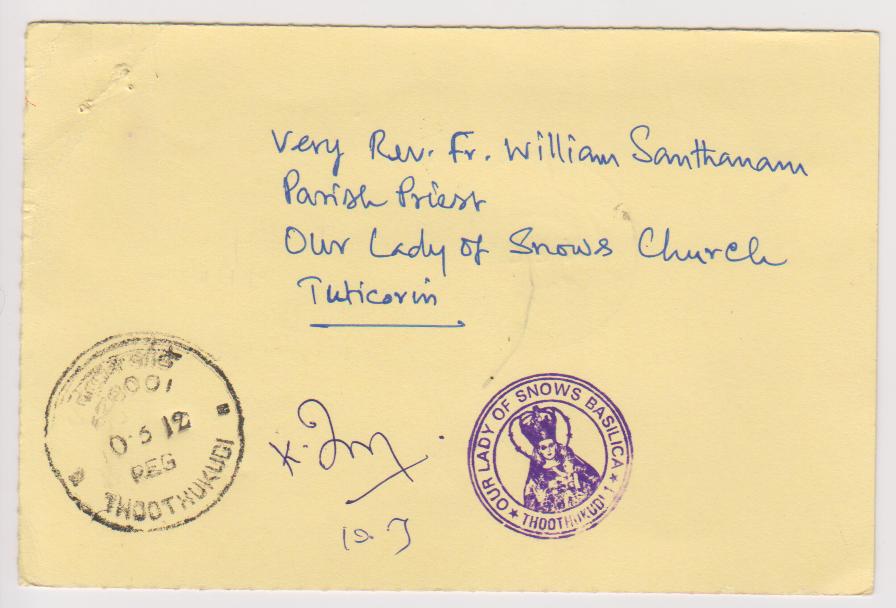 Very Rev. Fr. William Santhanam
Parish Priest
Our Lady of Snows Church
Tuticorin
628001
0.5 12
REG
THOOTHUKUDI
OUR LADY OF SNOWS BASILICA
★ THOOTHUKUDI 1 ★